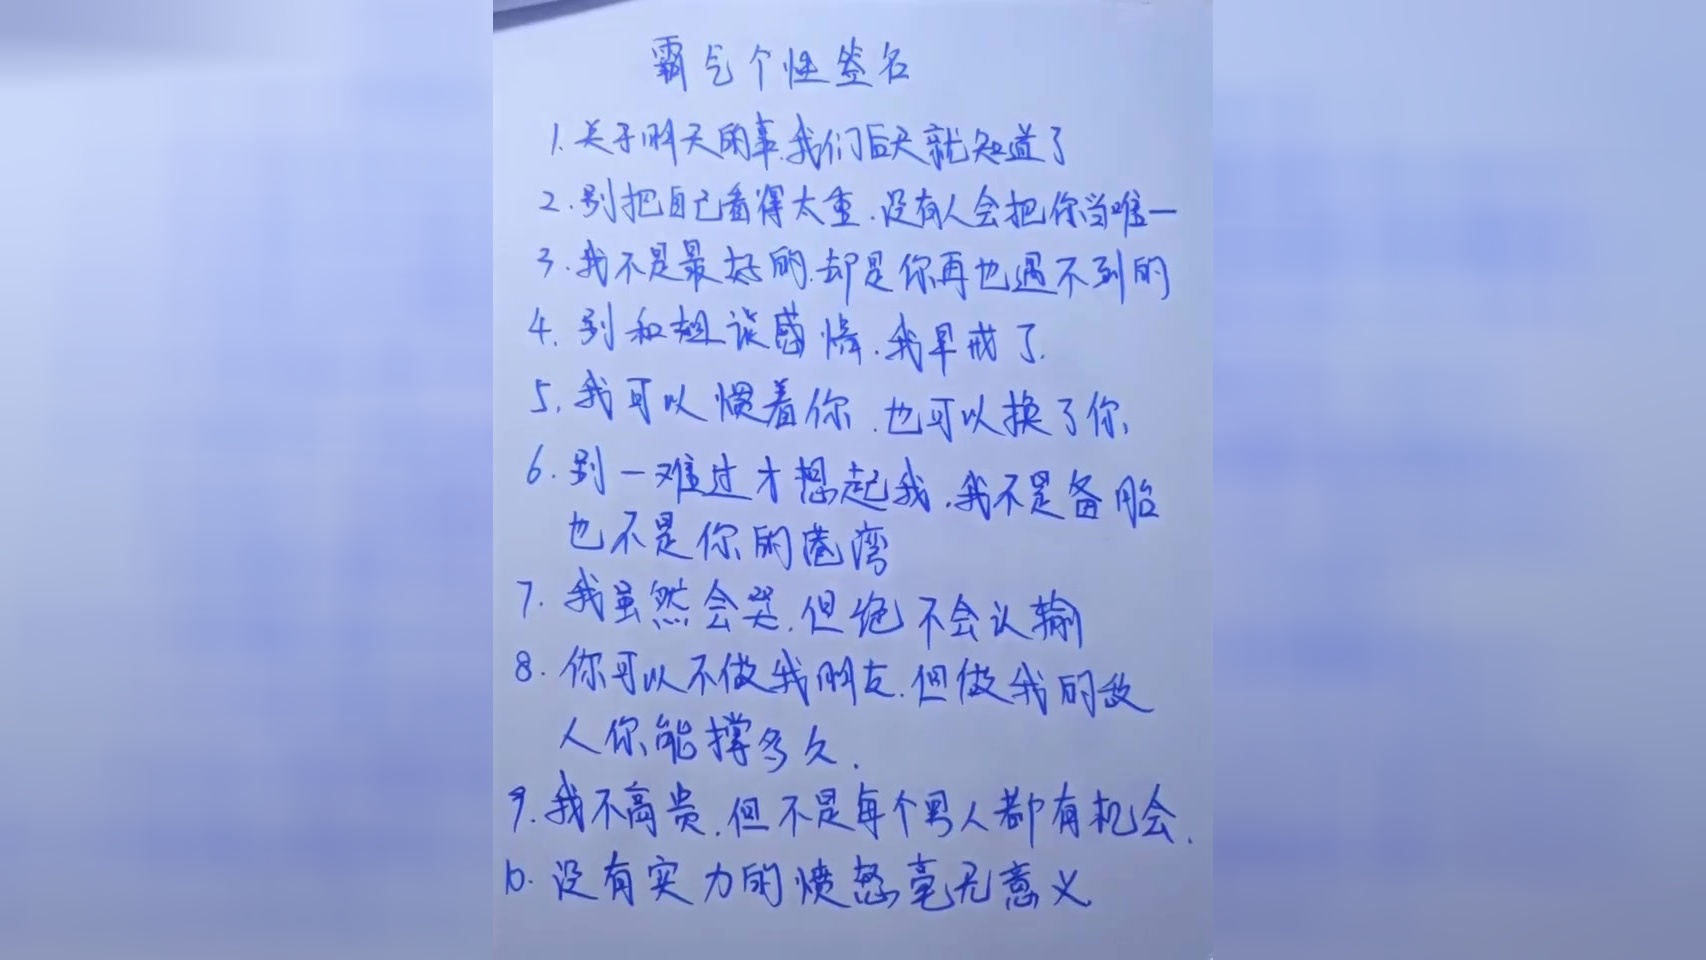 霸气个性签名
1.关于明天的事.我们后天就知道了
2.别把自己看得太重.没有人会把你当唯一
3.我不是最好的.却是你再也遇不到的
4.别和姐谈感情.我早戒了.
5.我可以惯着你.也可以换了你.
6.别一难过才想起我.我不是备胎
也不是你的港湾
7.我虽然会哭.但绝不会认输
8.你可以不做我朋友.但做我的敌
人你能撑多久.
9.我不高贵.但不是每个男人都有机会.
10.没有实力的愤怒毫无意义